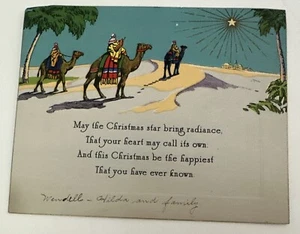 May the Christmas star bring radiance,
That your heart may call its own.
And this Christmas be the happiest
That you have ever known.
Wendell - Hilda and family